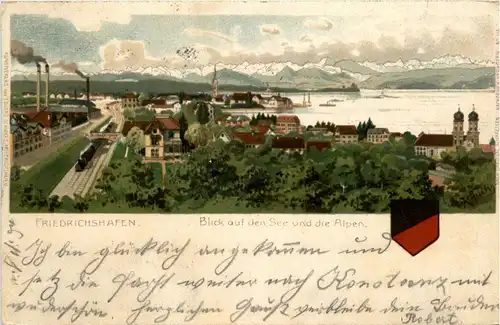 FRIEDRICHSHAFEN.
Blick auf den See und die Alpen.
Ich bin glücklich angekommen und
setz die Fahrt weiter nach Konstanz mit
wunderschön herzlichen Gruß verbleibe dein Bruder
Robert